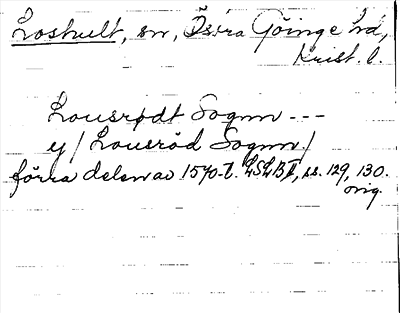 Loshult, sn, Östra Göinge hd,
Krist. l.
Lousrødt Sognn ---
ej / Lousröd Sognn /
förra delen av 1570-t. LSLB II, ss. 129, 130.
orig.